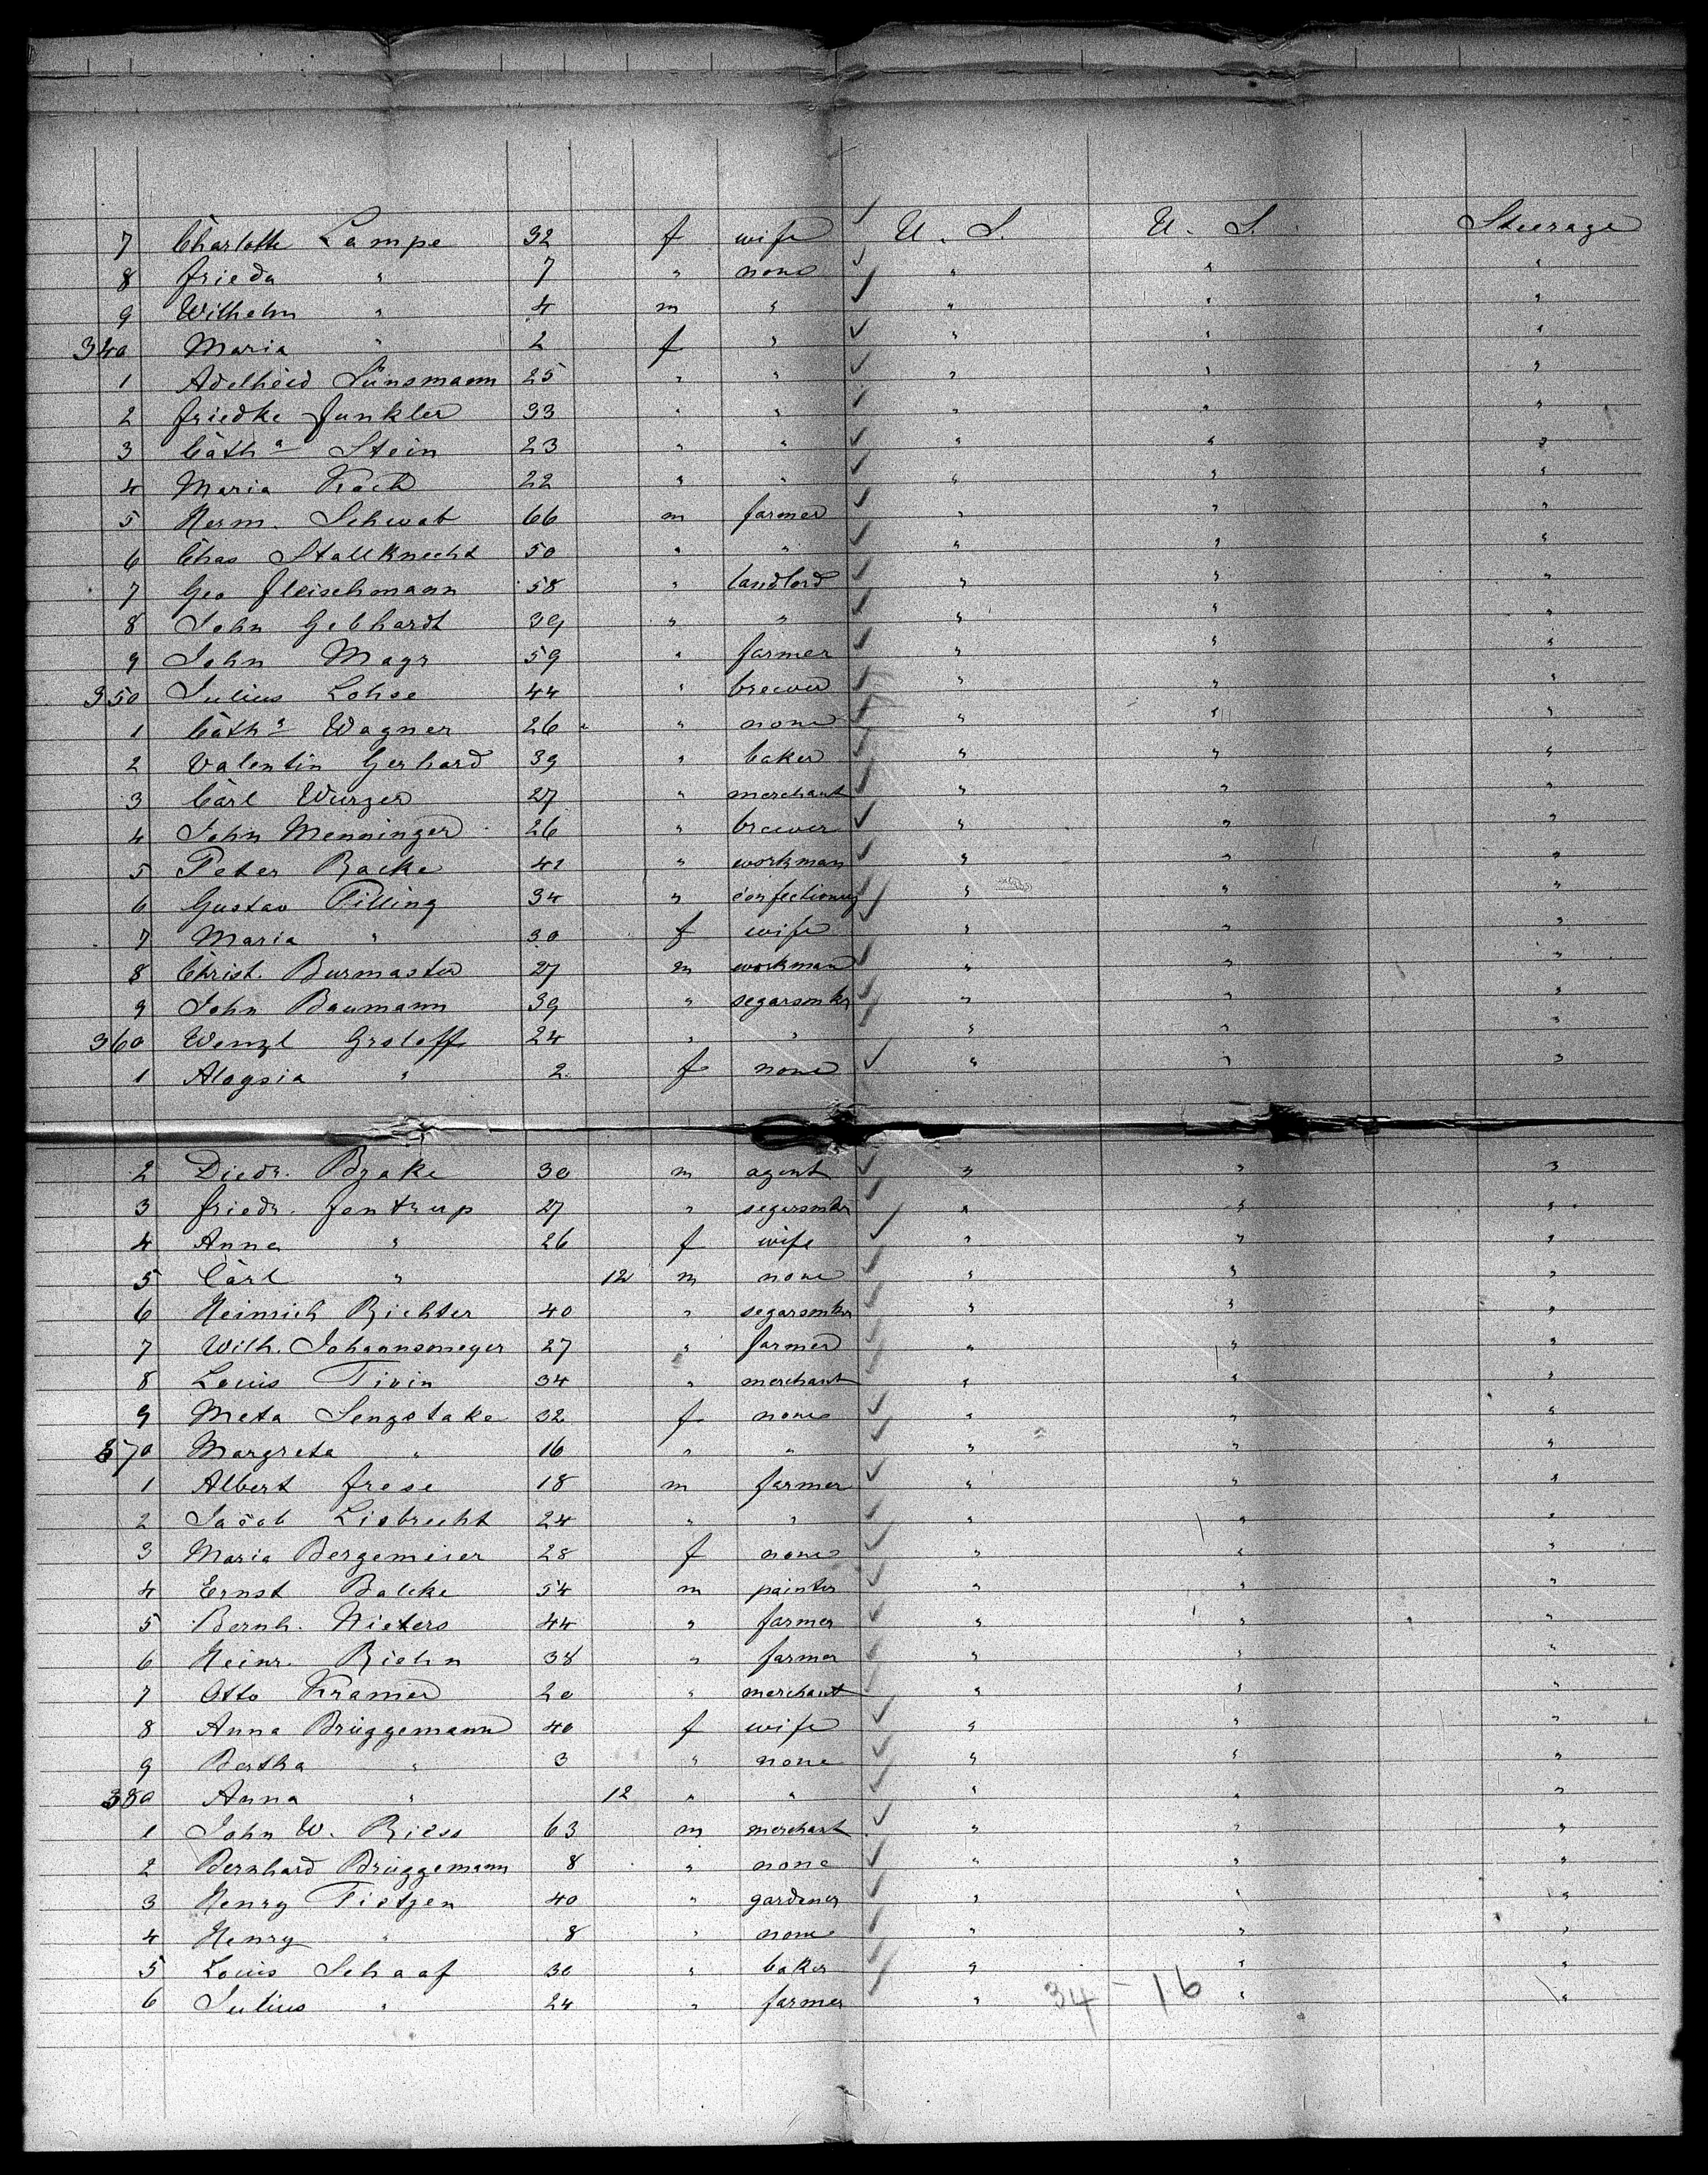 7 Charlotte Lampe 32 f wife U. S. U. S. Steerage
8 Frieda " 7 " none " " "
9 Wilhelm " 4 m " " " "
340 Maria " 2 f " " " "
1 Adelheid Lünsmann 25 " " " " "
2 Friedke Junkler 33 " " " " "
3 Cath a Stein 23 " " " " "
4 Maria Koch 22 " " " " "
5 Herm. Schwab 66 m farmer " " "
6 Chas Stallknecht 50 " " " " "
7 Geo Fleischmann 58 " landlord " " "
8 John Gebhardt 39 " " " " "
9 John Mayr 59 " farmer " " "
350 Julius Lohse 44 " brewer " " "
1 Cath a Wagner 26 " none " " "
2 Valentin Gerhard 39 " baker " " "
3 Carl Wurzer 27 " merchant " " "
4 John Menninger 26 " brewer " " "
5 Peter Racke 41 " workman " " "
6 Gustav Pilling 34 " confectionery " " "
7 Maria " 30 f wife " " "
8 Christ. Burmaster 27 m workman " " "
9 John Baumann 39 " segarsmkr " " "
360 Wenzl Groloff 24 " " " " "
1 Aloysia " 2 f none " " "
2 Diedr. Brake 30 m agent " " "
3 Friedr. Fontrup 27 " segarsmkr " " "
4 Anna " 26 f wife " " "
5 Carl " 12 m none " " "
6 Heinrich Richter 40 " segarsmkr " " "
7 Wilh. Johannsmeyer 27 " farmer " " "
8 Louis Tivin 34 " merchant " " "
9 Meta Sengstake 32 f none " " "
370 Margreta " 16 " " " " "
1 Albert Frese 18 m farmer " " "
2 Jacob Lisbrecht 24 " " " " "
3 Maria Bergemeier 28 f none " " "
4 Ernst Balcke 54 m painter " " "
5 Bernh. Nieters 44 " farmer " " "
6 Heinr. Riehn 38 " farmer " " "
7 Otto Kramer 20 " merchant " " "
8 Anna Brüggemann 40 f wife " " "
9 Bertha " 3 " none " " "
380 Anna " 12 " " " " "
1 John W. Riess 63 m merchant " " "
2 Bernhard Brüggemann 8 " none " " "
3 Henry Tietjen 40 " gardener " " "
4 Henry " 8 " none " " "
5 Louis Schaaf 30 " baker " " "
6 Julius " 24 " farmer " " "
34 - 16